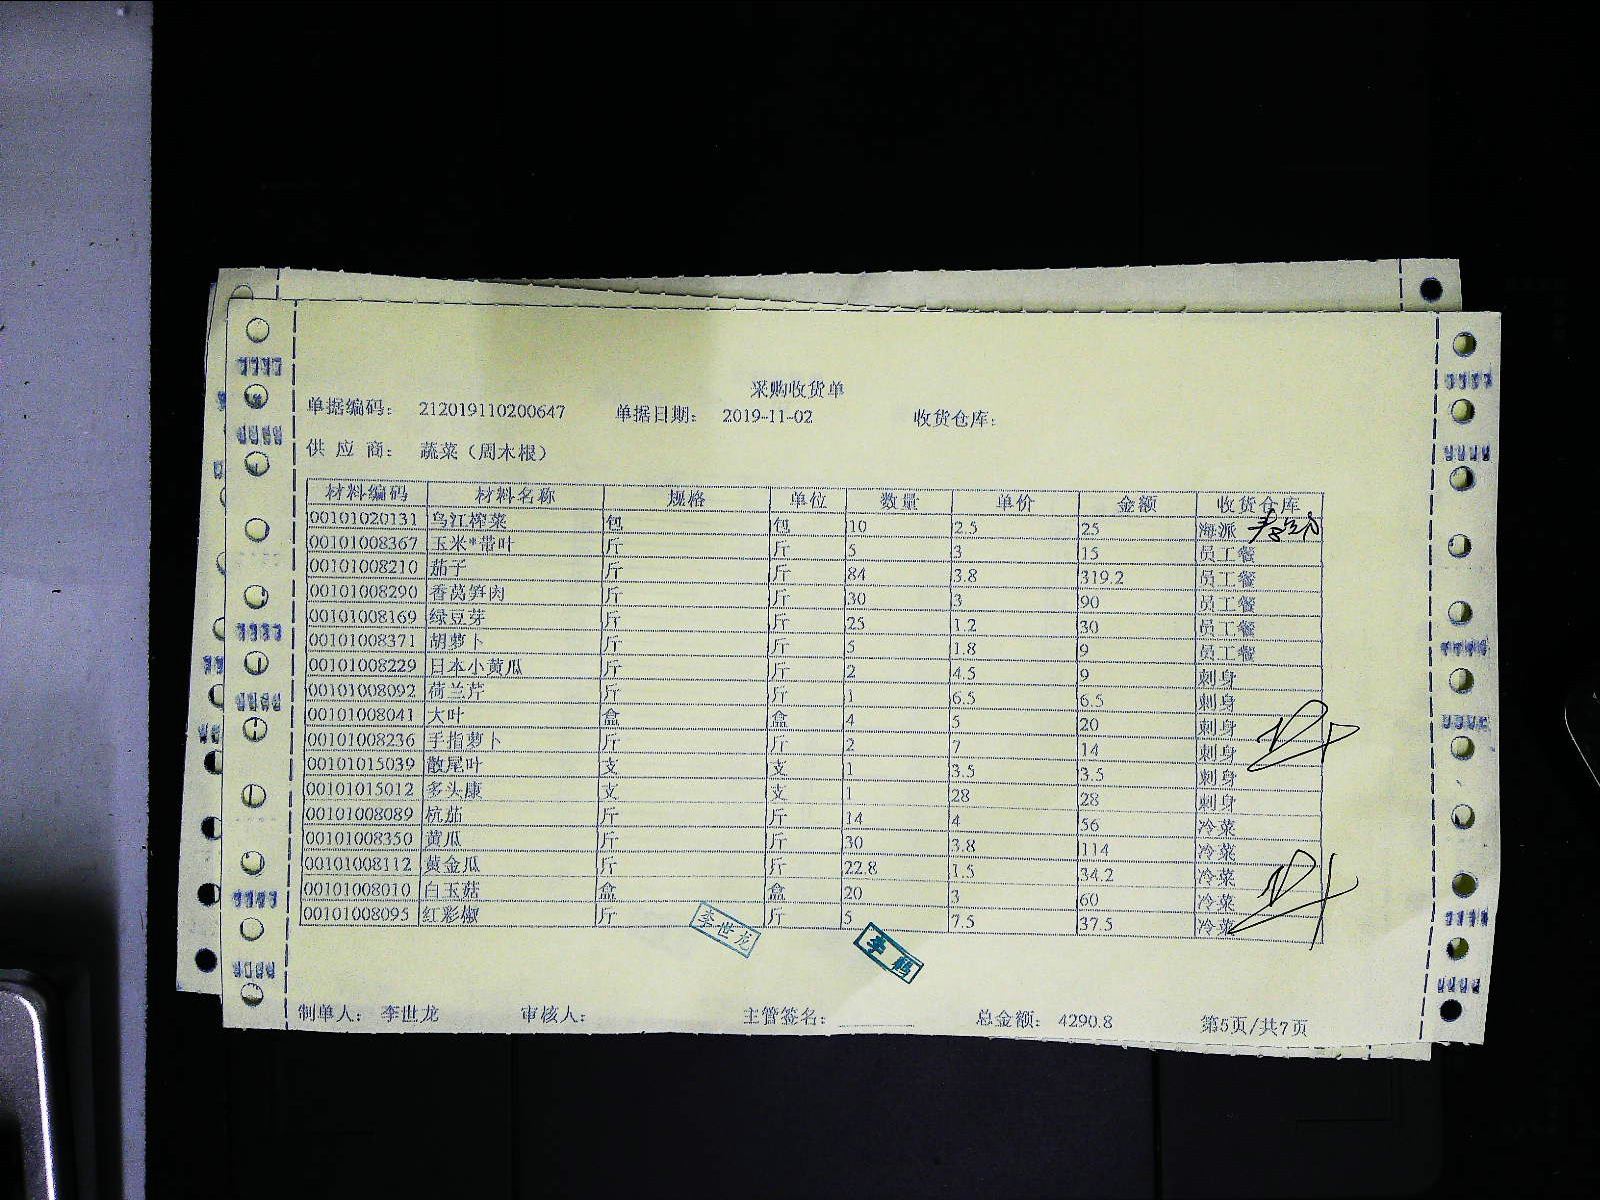 采购收货单
单据编码： 212019110200647 单据日期： 2019-11-02 收货仓库：
供 应 商： 蔬菜（周木根）
材料编码 材料名称 规格 单位 数量 单价 金额 收货仓库
00101020131 乌江榨菜 包 包 10 2.5 25 海派
00101008367 玉米*带叶 斤 斤 5 3 15 员工餐
00101008210 茄子 斤 斤 84 3.8 319.2 员工餐
00101008290 香莴笋肉 斤 斤 30 3 90 员工餐
00101008169 绿豆芽 斤 斤 25 1.2 30 员工餐
00101008371 胡萝卜 斤 斤 5 1.8 9 员工餐
00101008229 日本小黄瓜 斤 斤 2 4.5 9 刺身
00101008092 荷兰芹 斤 斤 1 6.5 6.5 刺身
00101008041 大叶 盒 盒 4 5 20 刺身
00101008236 手指萝卜 斤 斤 2 7 14 刺身
00101015039 散尾叶 支 支 1 3.5 3.5 刺身
00101015012 多头康 支 支 1 28 28 刺身
00101008089 杭茄 斤 斤 14 4 56 冷菜
00101008350 黄瓜 斤 斤 30 3.8 114 冷菜
00101008112 黄金瓜 斤 斤 22.8 1.5 34.2 冷菜
00101008010 白玉菇 盒 盒 20 3 60 冷菜
00101008095 红彩椒 斤 斤 5 7.5 37.5 冷菜
李世龙
李鹏
制单人： 李世龙 审核人： 主管签名： 总金额： 4290.8 第5页/共7页